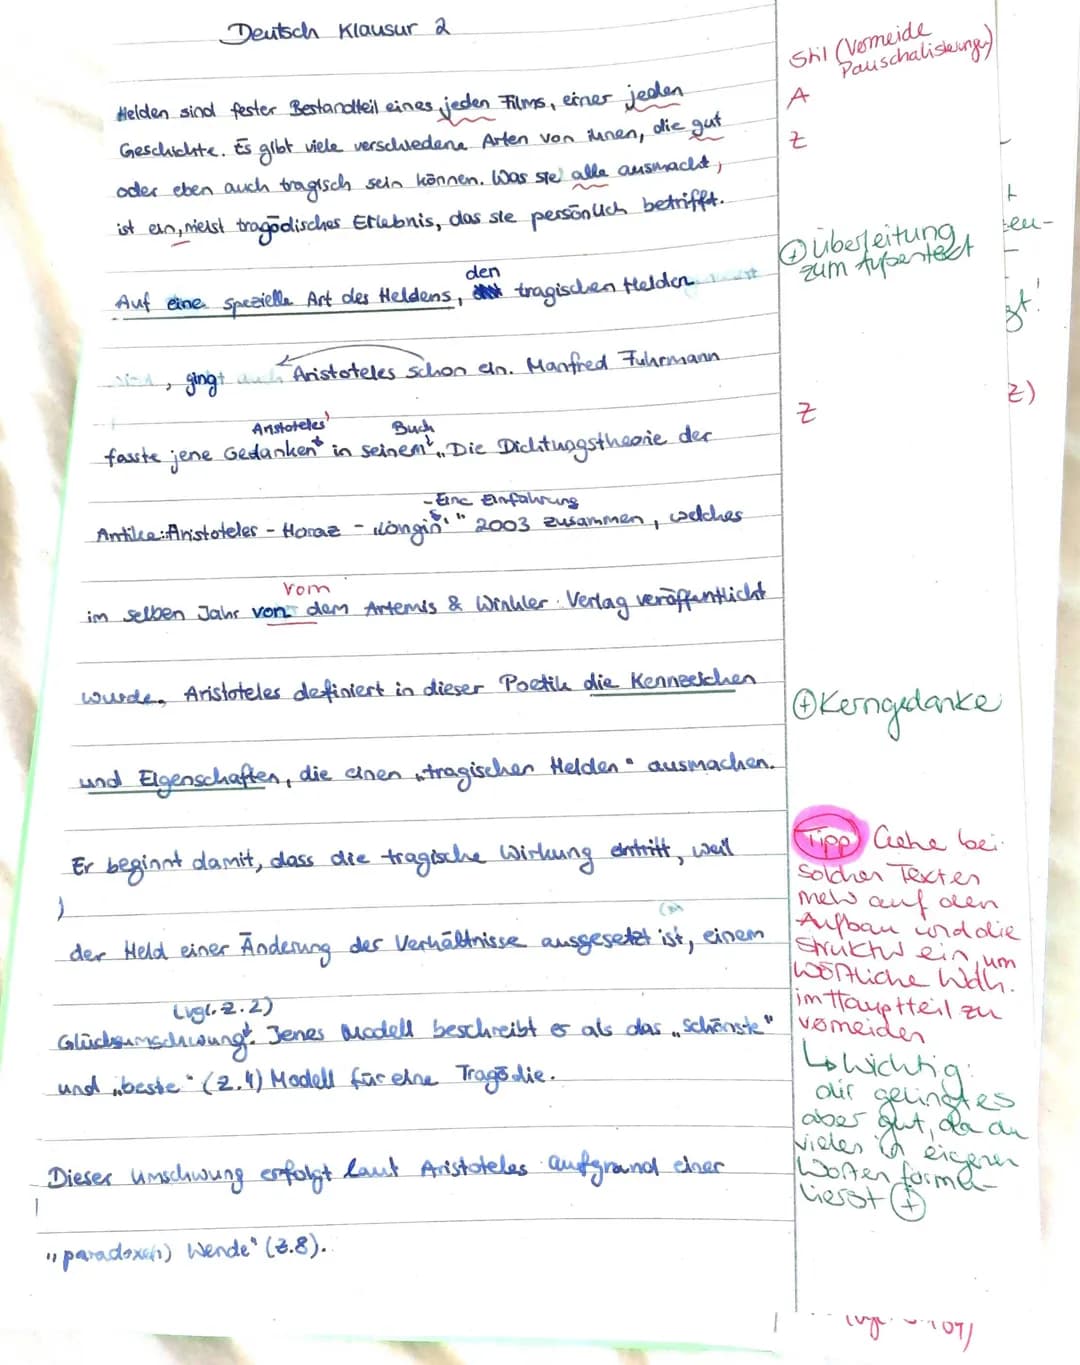 Deutsch Klausur 2
Stil (Vermeide
Pauschalisierungen)
Helden sind fester Bestandteil eines jeden Films, einer jeden
A
Geschichte. Es gibt viele verschiedene Arten von ihnen, die gut
Z
oder eben auch tragisch sein können. Was sie alle ausmacht,
ist ein, meist tragödisches Erlebnis, das sie persönlich betrifft.
⊕ Überleitung
zum Außentext
den
Auf eine spezielle Art des Heldens, tragischen Helden
, ging auch Aristoteles schon ein. Manfred Fuhrmann
Z
Aristoteles' Buch
fasste jene Gedanken in seinem „Die Dichtungstheorie der
- Eine Einführung
Antike: Aristoteles - Horaz - ‚Longin'" 2003 zusammen, welches
vom
im selben Jahr von dem Artemis & Winkler Verlag veröffentlicht
wurde. Aristoteles definiert in dieser Poetik die Kennzeichen
⊕ Kerngedanke
und Eigenschaften, die einen „tragischen Helden" ausmachen.
Er beginnt damit, dass die tragische Wirkung eintritt, weil
der Held einer Änderung der Verhältnisse ausgesetzt ist, einem
(vgl. Z. 2)
Glücksumschwung. Jenes Modell beschreibt er als das „schönste"
und „beste" (Z.4) Modell für eine Tragödie.
Tipp Gehe bei
solchen Texten
mehr auf den
Aufbau und die
Struktur ein, um
wörtliche Wdh.
im Hauptteil zu
vermeiden
↳ Wichtig:
dir gelingt es
aber gut, da du
vieles in eigenen
Worten formu-
lierst ⊕
Dieser Umschwung erfolgt laut Aristoteles aufgrund einer
„paradoxe(n) Wende" (Z.8).